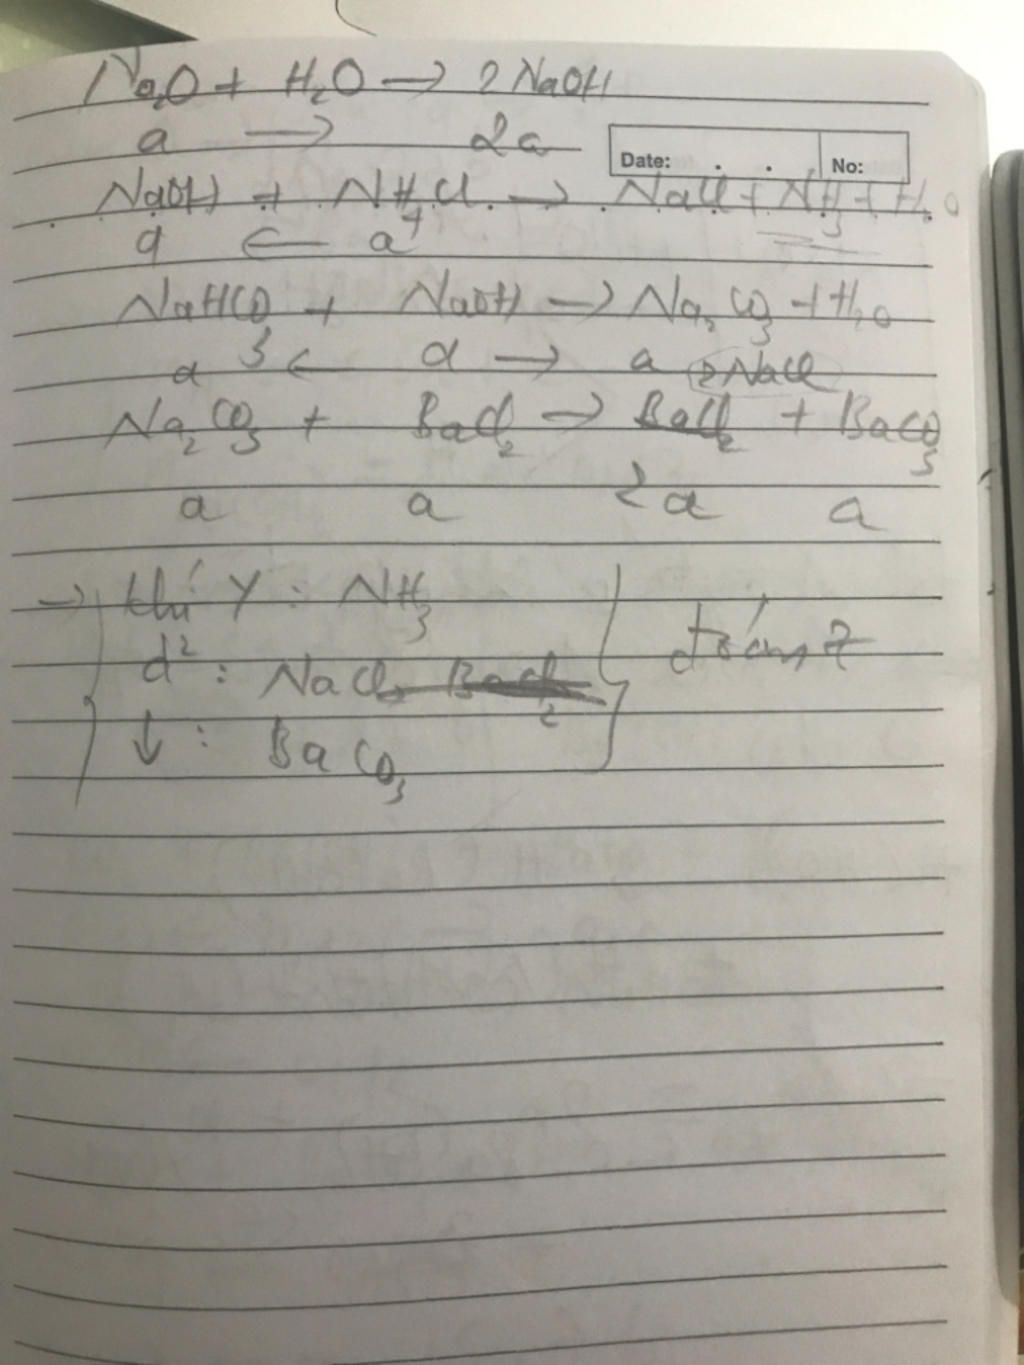 Na2O + H2O → 2NaOH
a → 2a
Date: . . No:
NaOH + NH4Cl → NaCl + NH3 + H2O
a ← a
NaHCO3 + NaOH → Na2CO3 + H2O
a ← a → a 2NaCl
Na2CO3 + BaCl2 → BaCl2 + BaCO3
a a 2a a
→ khí Y : NH3
d2 : NaCl, BaCl2
↓ : BaCO3